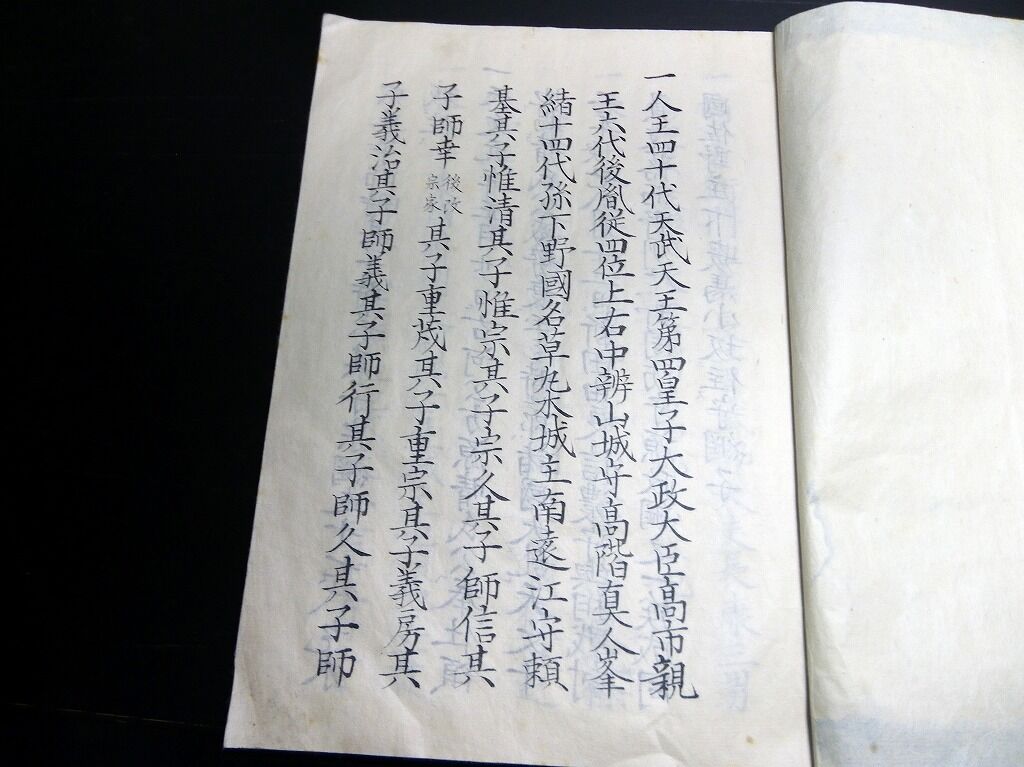 一人王四十代天武天王第四皇子大政大臣高市親
王六代後胤従四位上右中辨山城守高階真人峯
緒十四代孫下野國名草九木城主南遠江守頼
基其子惟清其子惟宗其子宗久其子師信其
子師幸後改宗家其子重茂其子重宗其子義房其
子義治其子師義其子師行其子師久其子師